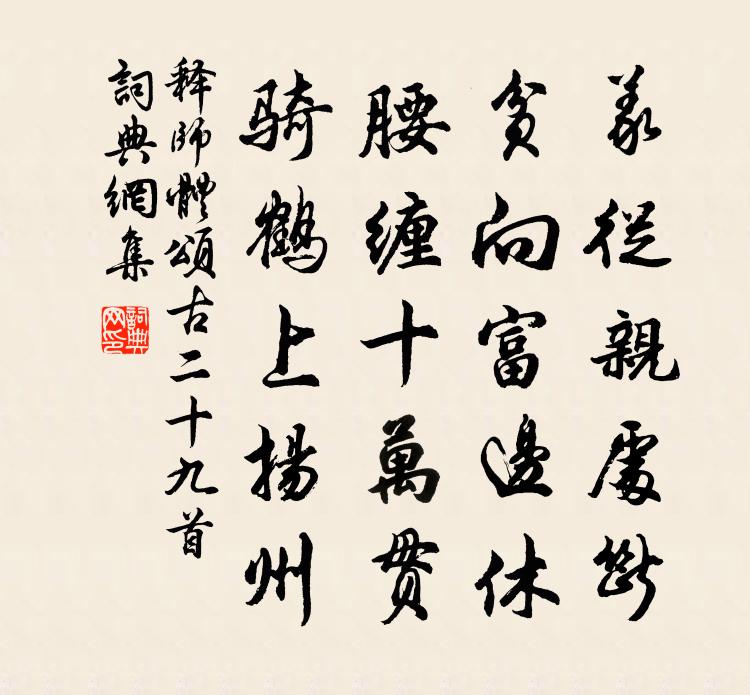 義從親處斷
貧向富邊休
腰纏十萬貫
騎鶴上揚州
释師體頌古二十九首
詞典網集
詞典网印